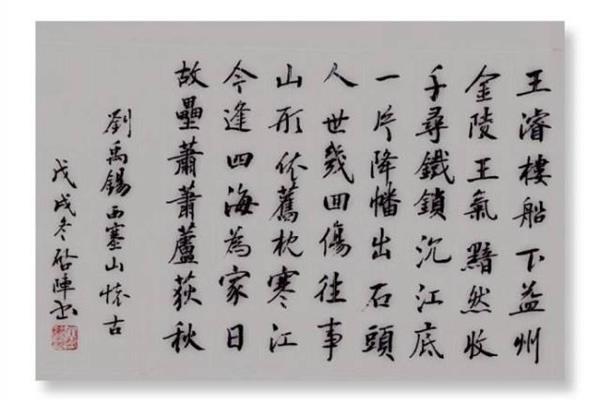 王濬樓船下益州
金陵王氣黯然收
千尋鐵鎖沉江底
一片降幡出石頭
人世幾回傷往事
山形依舊枕寒江
今逢四海為家日
故壘蕭蕭蘆荻秋
劉禹錫西塞山懷古
戊戌冬陣书